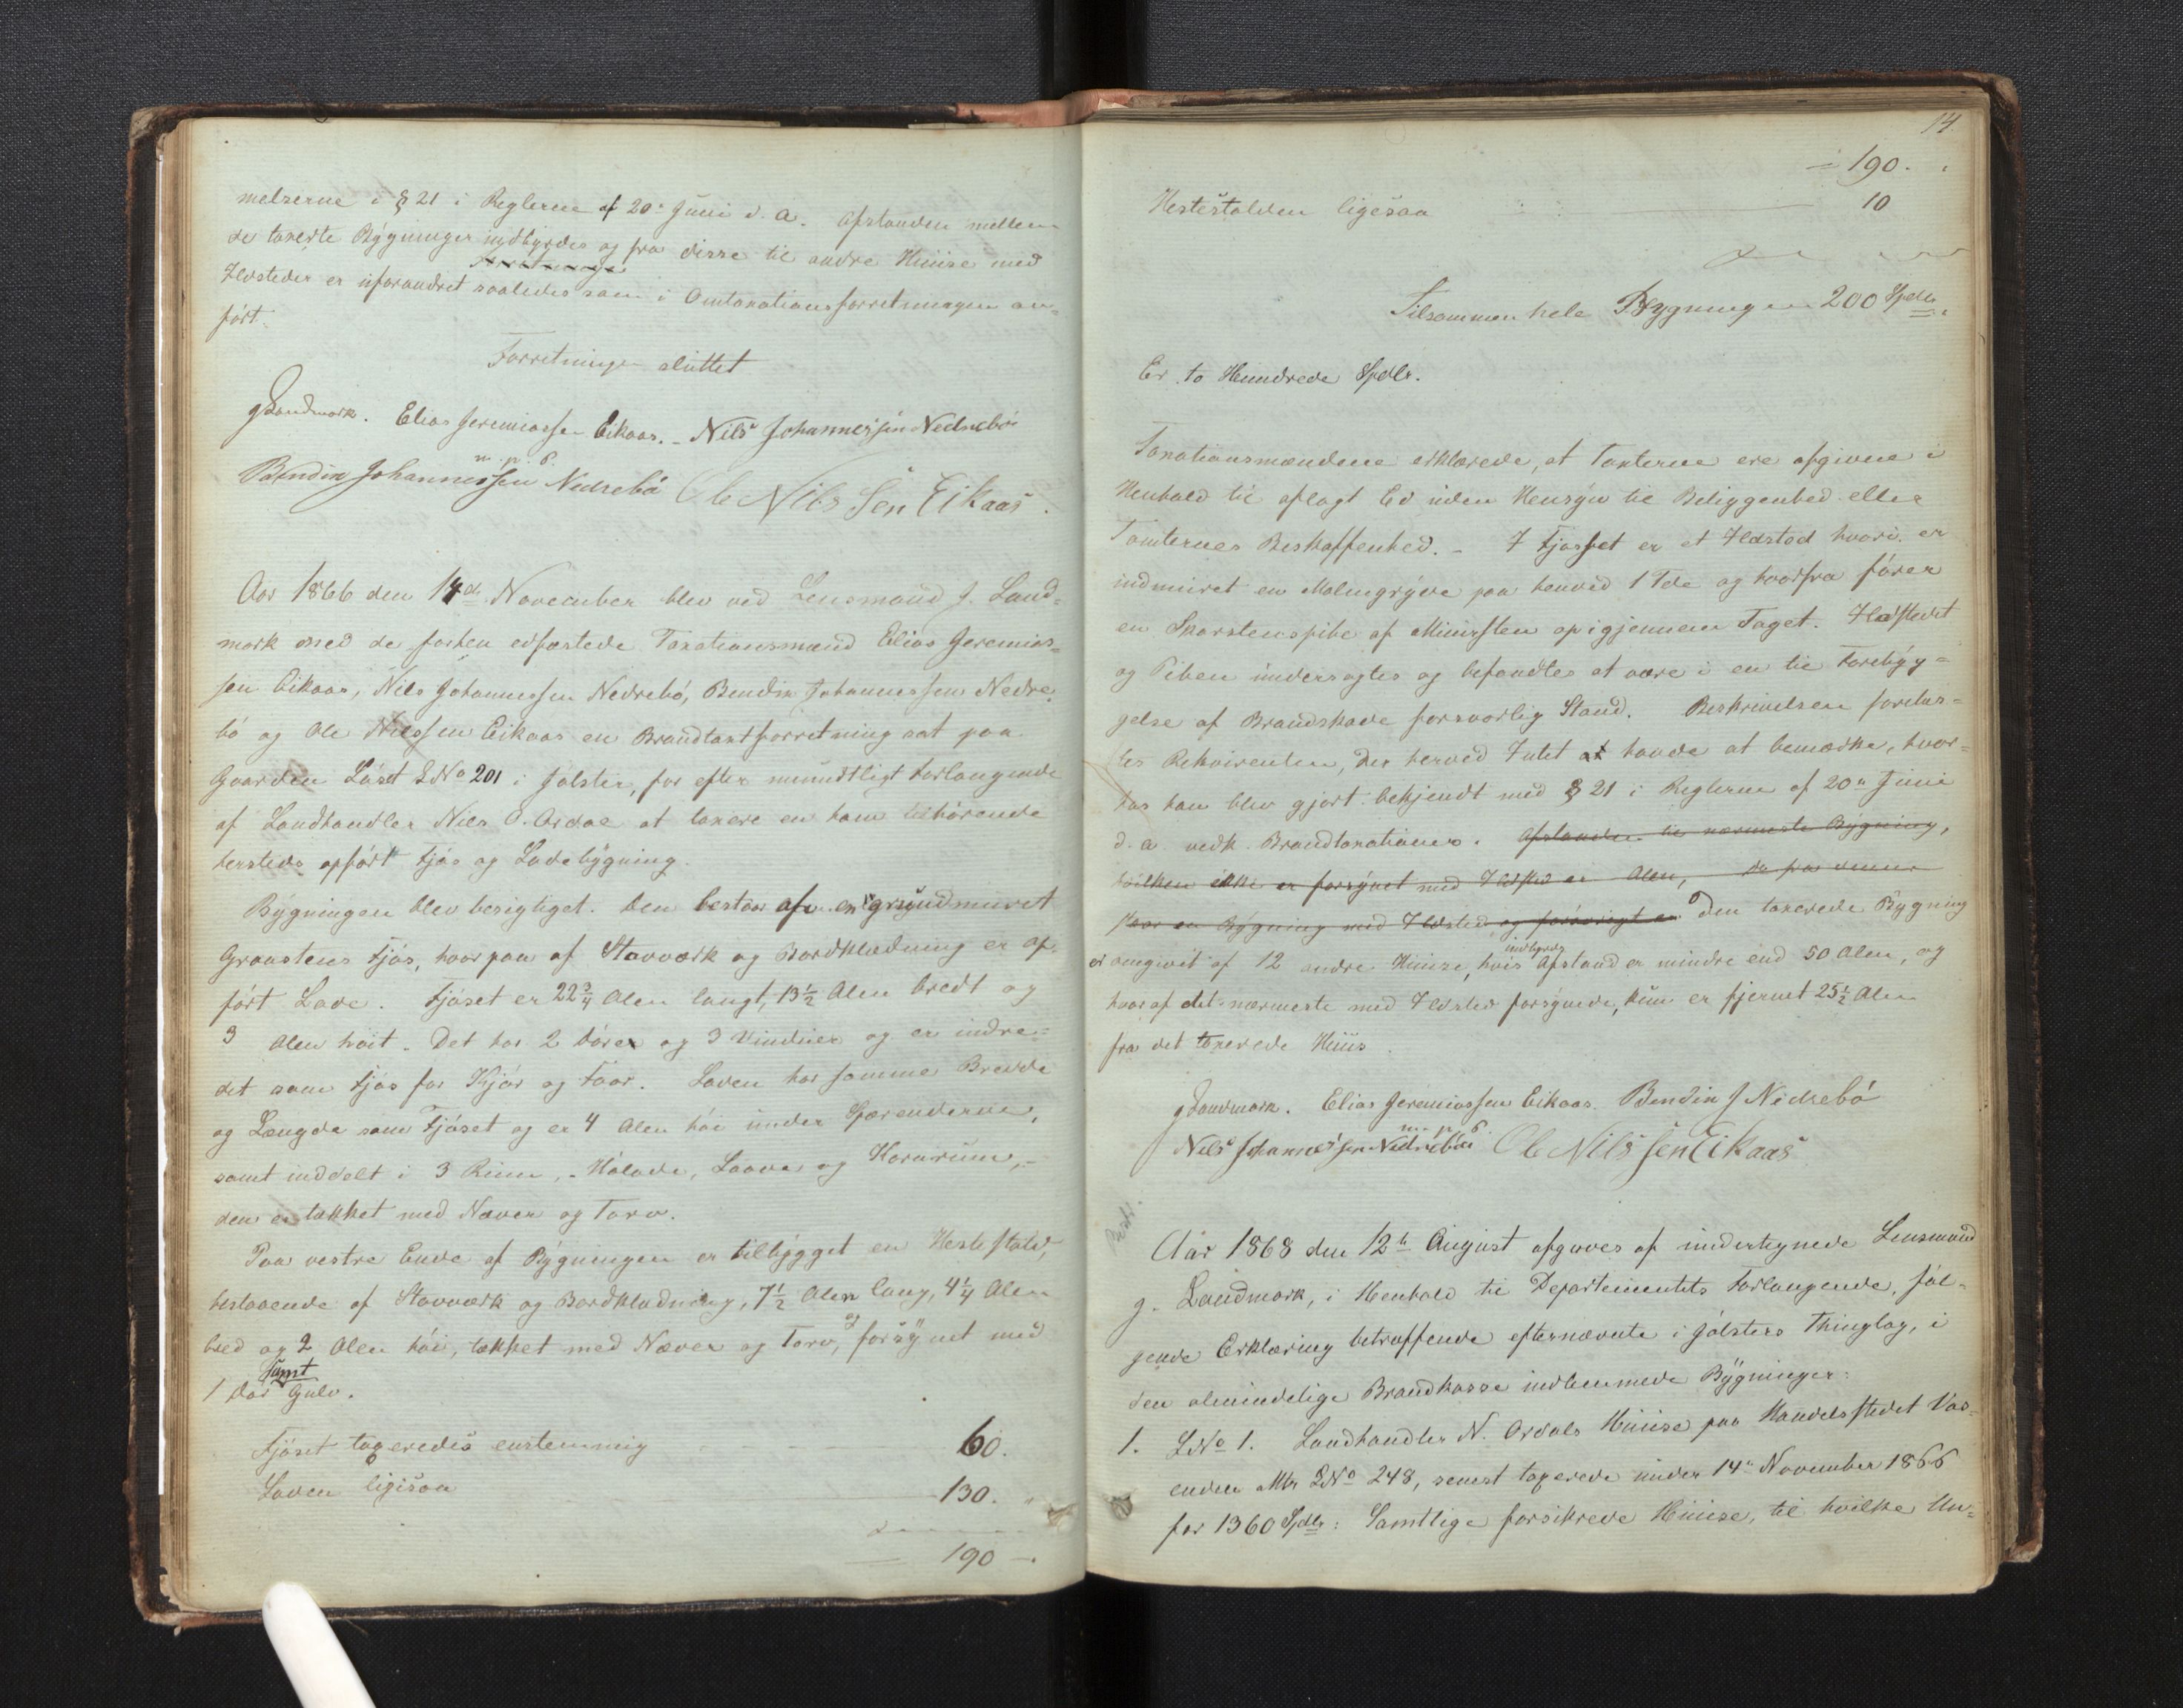 melserne i § 21 i Reglerne af 20de Juni d. A. Afstanden mellem
de taxerte Bygninger indbyrdes og fra disse til andre Huuse med
Ildsteder er uforandret saaledes som i Omtaxationsforretningen an-
ført.
Forretningen sluttet
J Landmark. Elias Jeremiassen Eikaas. - Nils Johannessen Nedrebø
m. p. P.
Bendix Johannessen Nedrebø Ole Nils Sen Eikaas.
Aar 1866 den 14de November blev ved Lensmand J. Land-
mark med de forhen edfæstede Taxationsmænd Elias Jeremias-
sen Eikaas, Nils Johannessen Nedrebø, Bendix Johannessen Nedre-
bø og Ole Nilssen Eikaas en Brandtaxtforretning sat paa
Gaarden Løset LNo 201 i Jølster, for efter mundtligt Forlangende
af Landhandler Niels O. Ardal at taxere en ham tilhørende
hersteds opført Fjøs og Ladebygning.
Bygningen blev besigtiget. Den bestaar af en grundmuret
Graastens Fjøs, hvorpaa af Stavværk og Bordklædning er op-
ført Lade. Fjøset er 22 3/4 Alen langt, 13 1/2 Alen bredt og
3 Alen høit. Det har 2 Døre og 3 Vinduer og er indre-
det som Fjøs for Kjør og Faar. Laden har samme Bredde
og Længde som Fjøset og er 4 Alen høi under Spærenderne,
samt inddelt i 3 Rum, - Hølade, Laave og Kornrum, -
den er tækket med Næver og Torv.
Paa vestre Ende af Bygningen er tilbygget en Hestestald,
bestaaende af Stavværk og Bordklædning, 7 1/2 Alen lang, 4 1/4 Alen
bred og 2 Alen høi, tækket med Næver og Torv, og forsynet med
1 Dør samt Gulv.
Fjøset taxeredes enstemmig 60.
Laden ligesaa 130. "
190 -.
14
190.
Hestestalden ligesaa 10
Tilsammen hele Bygningen 200 Spdlr.
Er to Hundrede Spdlr.
Taxationsmændene erklærede, at Taxterne ere afgivne i
Henhold til aflagt Ed uden Hensyn til Beliggenhed eller
Tomternes Beskaffenhed. - I Fjøset er et Ildsted hvori er
indmuret en Malmgryde paa henved 1 Tde og hvorfra fører
en Skorstenspibe af Muursten op igjennem Taget. Ildstedet
og Piben undersøgtes og befandtes at være i en til Forebyg-
gelse af Brandskade forsvarlig Stand. Beskrivelsen forelæs-
tes Rekvirenten, der herved Intet at havde at bemærke, hvor-
hos han blev gjort bekjendt med § 21 i Reglerne af 20de Juni
d. a. vedk. Brandtaxationer. Afstanden til nærmeste Bygning,
hvilken ikke er forsynet med Ildsted er Alen, da fra denne
staar en Bygning med Ildsted og forøvrigt er Den taxerede Bygning
er omgivet af 12 andre Huuse, hvis indbyrdes Afstand er mindre end 50 Alen, og
hvoraf det nærmeste med Ildsted forsynede, kun er fjernet 25 1/2 Alen
fra det taxerede Huus.
J Landmark. Elias Jeremiassen Eikaas. Bendix J Nedrebø
m. p. P.
Nils Johannessen Nedrebøe Ole Nils Sen Eikaas
Aar 1868 den 12te August afgaves af undertegnede Lensmand
J. Landmark, i Henhold til Departementets Forlangende, føl-
gende Erklæring betræffende efternævnte i Jølsters Thinglag, i
den almindelige Brandkasse indlemmede Bygninger:
1. LNo 1. Landhandler N. Ardals Huuse paa Handelsstedet Vas-
enden Mtr LNo 248, senest taxerede under 14de November 1866
for 1360 Spdlr: Samtlige forsikrede Huuse, til hvilke Un-